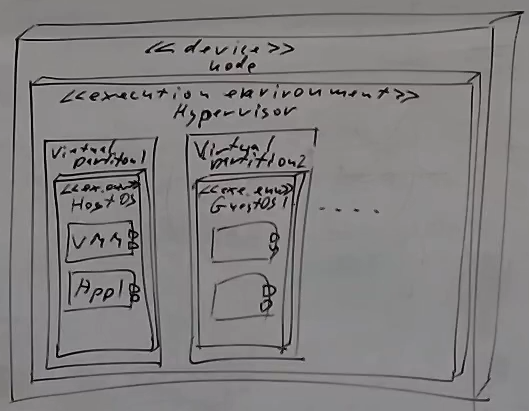 <<device>>
node
<<execution environment>>
Hypervisor
Virtual
partition1
<<ex.env>>
HostOS
VMM
App1
Virtual
partition2
<<exe.env>>
GuestOS1
....